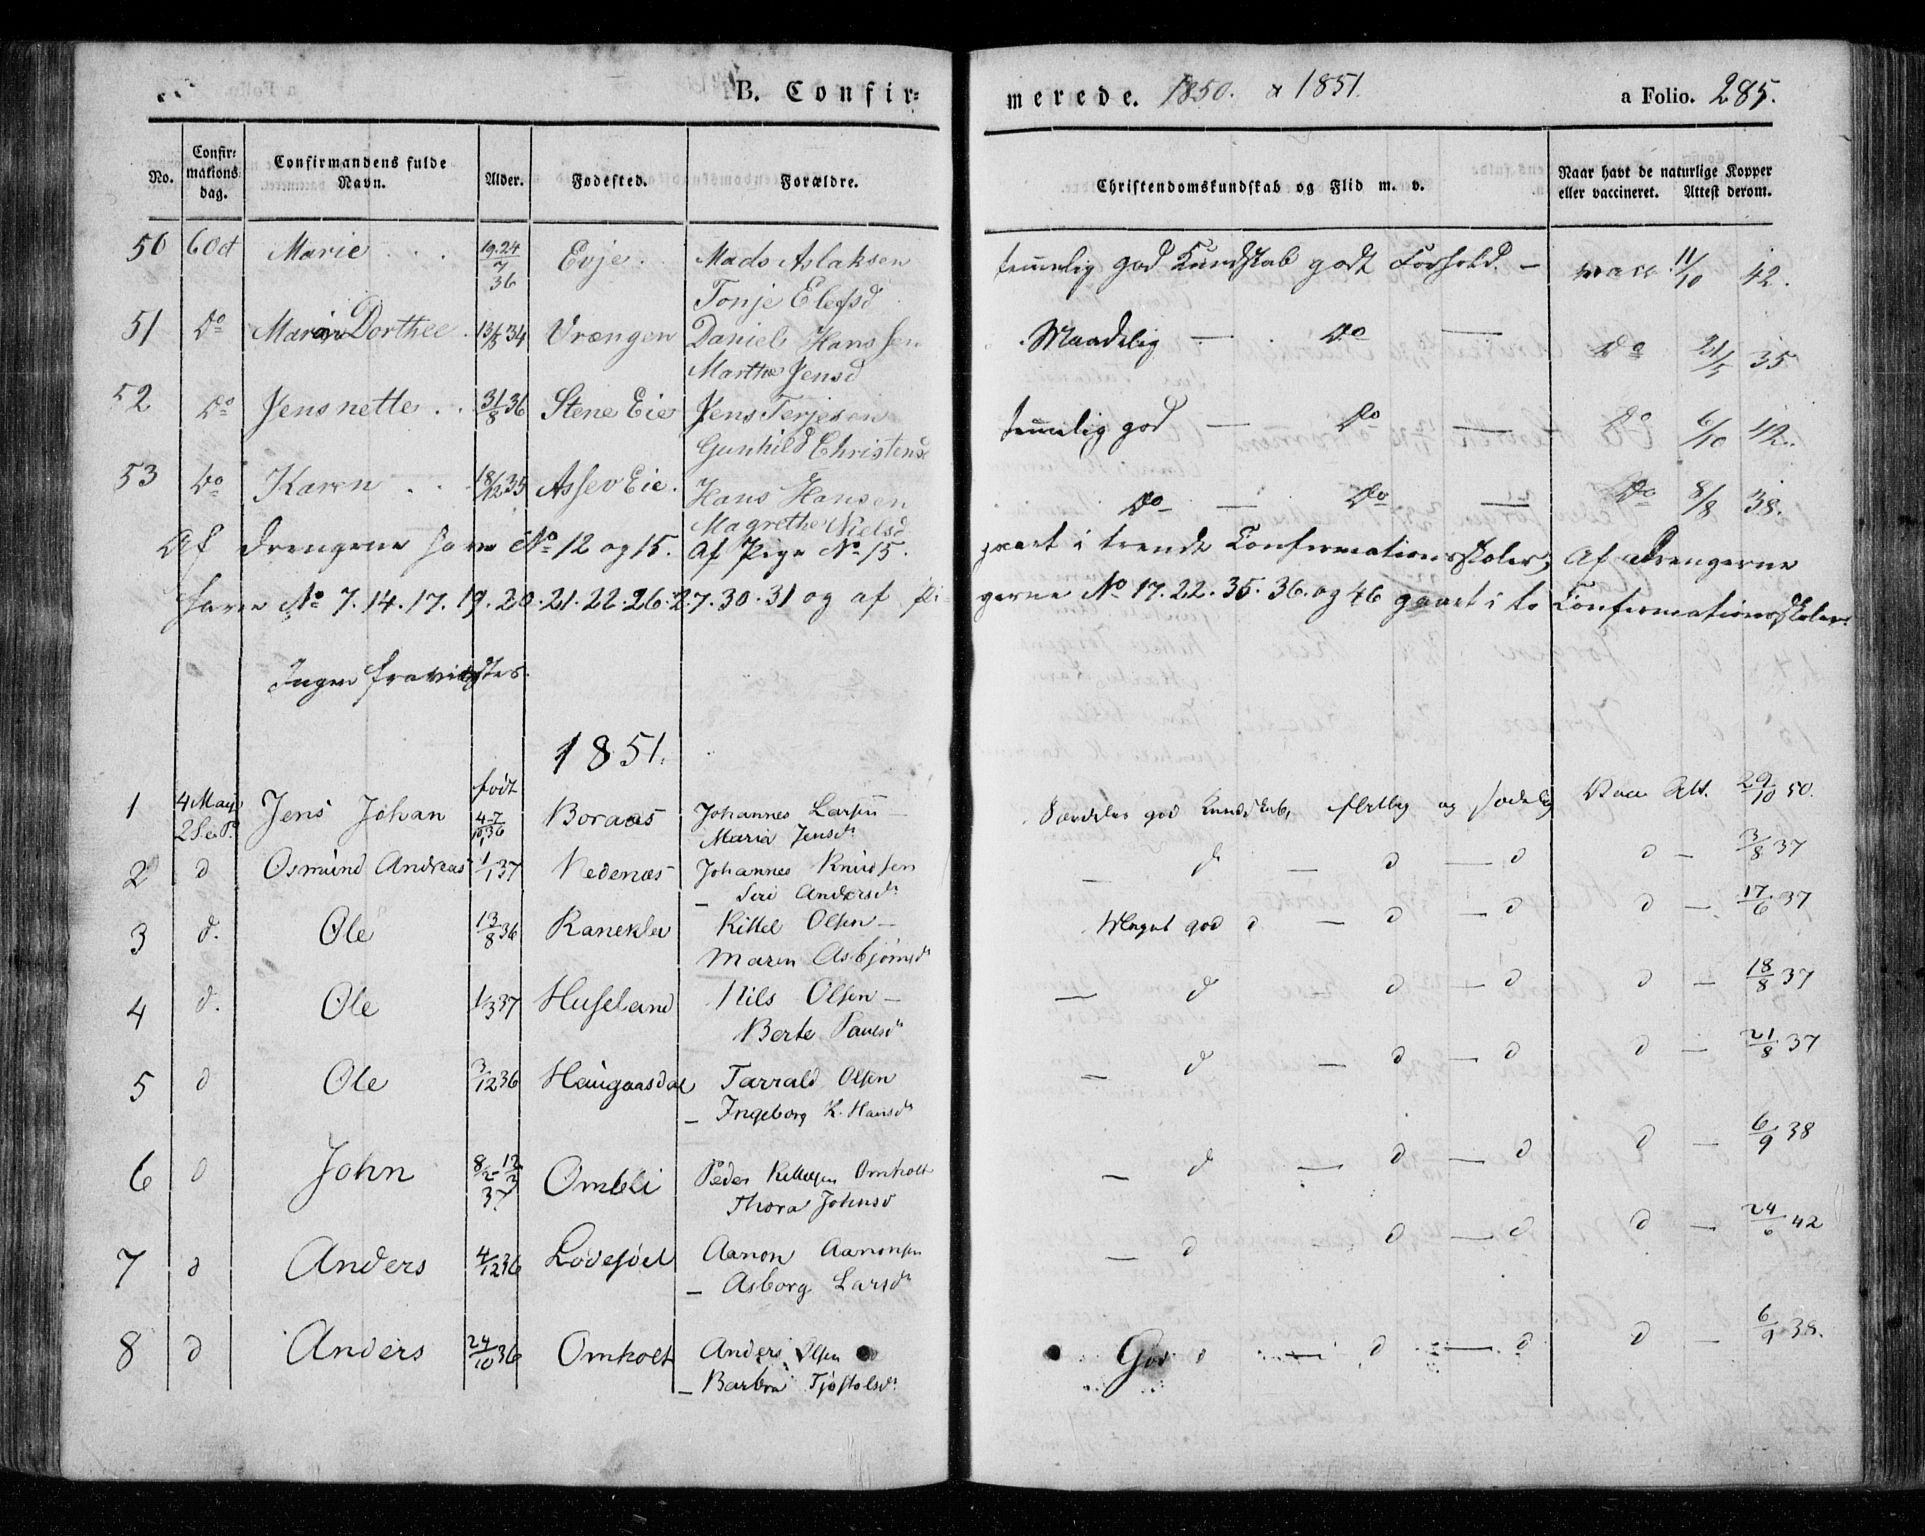 B. Confir= merede. 1850. & 1851. a Folio. 285.
No. Confir= mations dag. Confirmandens fulde Navn. Alder. Fødested. Forældre. Christendomskundskab og Flid m. v. Naar havt de naturlige Kopper eller vaccineret. Attest derom.
50 6 Oct Marie 19.24/7 36 Evje. Mads Aslaksen temelig god Kundskab godt Forhold. — vacc. 11/10 42.
Tonje Elefsd
51 Do Maria Dorthee 13/5 34 Vrængen Daniel Hanssen Maadelig — Do — Do 21/5 35
Marthe Jensd
52 Do Jensnette 31/8 36 Stene Eie Jens Terjesen temelig god — Do — Do 6/10 42.
Gunhild Christensd
53 Do Karen 18/12 35 Assev Eie. Hans Hansen Do — Do — Do 8/8 38.
Magrethe Nielsd
Af Drengene have No 12 og 15. Af Pige No 15. gaaet i trende Confirmationsskoler; Af Drengerne
have No 7. 14. 17. 19. 20. 21. 22. 26. 27. 30. 31 og af Pi gerne No 17. 22. 35. 36. og 46 gaaet i to Confirmationsskoler.
Ingen fraviistes.
1851.
født
1 4 May 2 S. e. P. Jens Johan 4-7/10 36 Boraas Johannes Larsen — Særdeles god Kundskab, flittig og sædelig Vacc Att. 29/10 50.
Maria Jensdr
2 d Osmund Andreas 1/1 37 Nedenæs Johannes Knudsen — d — d — d d — 3/8 37
— Siri Andersdr
3 d. Ole 13/8 36 Raneklev Kittel Olsen — Meget god d — d — d d — 17/6 37
Maren Asbjørnsdr
4 d. Ole 1/3 37 Huseland Nils Olsen — — d d — d d — 18/8 37
Berte Paulsdr
5 d Ole 3/12 36 Haugaasdal Tarrald Olsen — d — d — d d — 21/8 37
— Ingeborg K. Hansdr
6 d John 8/2-12/3 37 Ombli Peder Kittelsen Omholt — d — d — d d — 6/9 38
Thora Johnsd
7 d Anders 4/12 36 Lødesøel Aanon Aanonsen — d — d — d d — 24/6 42
— Asborg Larsdr
8 d Anders 24/10 36 Omholt Anders Olsen God d — d — d d — 6/9 38.
— Barbra Tjøstolsdr